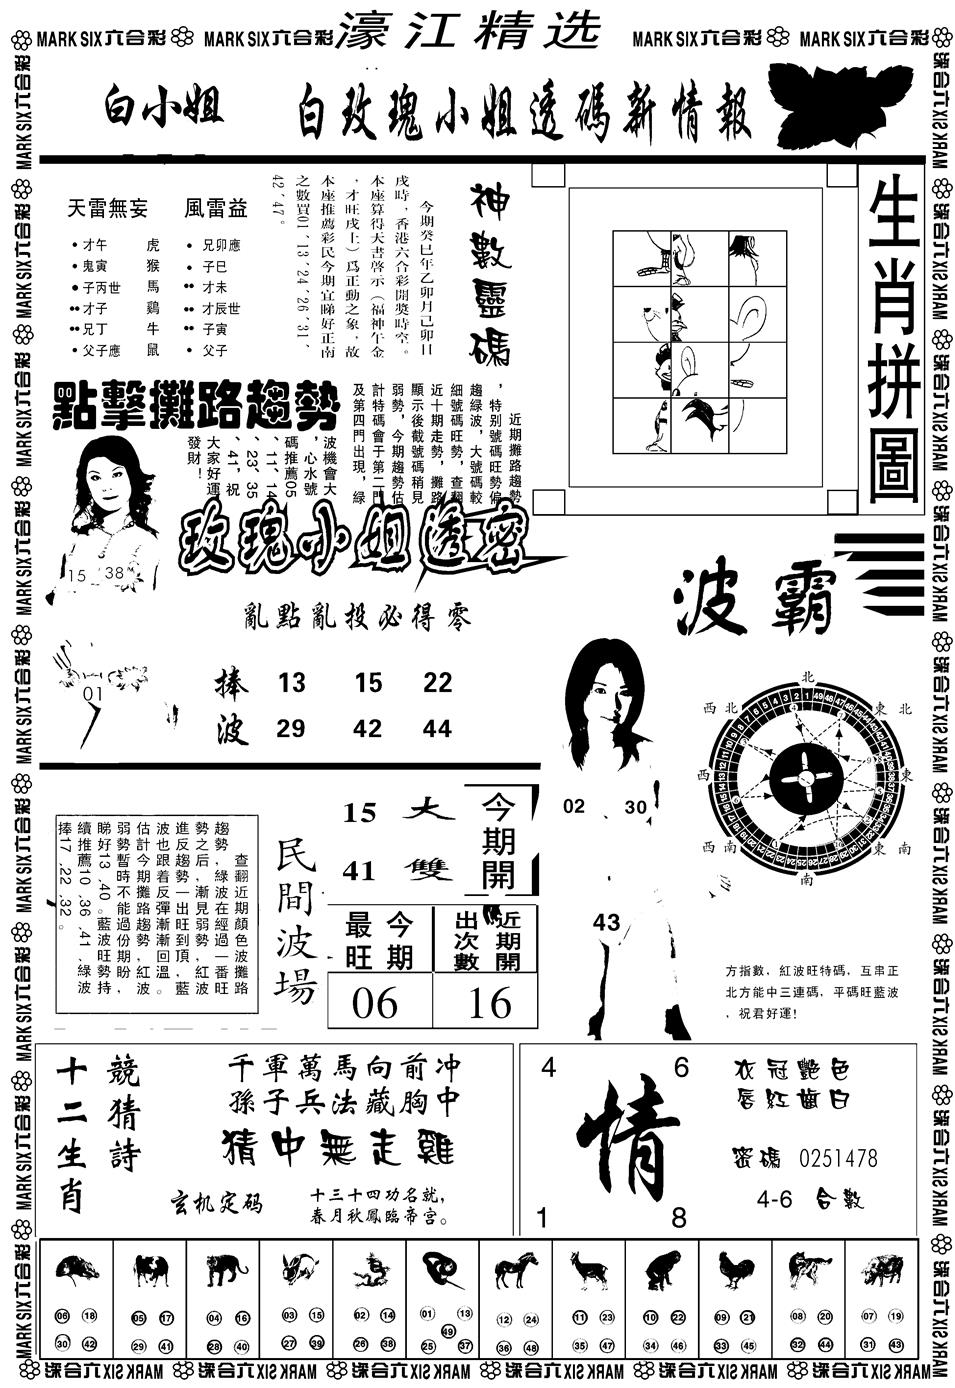 濠江精选
MARK SIX六合彩 MARK SIX六合彩 MARK SIX六合彩 MARK SIX六合彩
白小姐 白玫瑰小姐透碼新情報
天雷無妄
才午 虎
鬼寅 猴
子丙世 馬
才子 鷄
兄丁 牛
父子應 鼠
風雷益
兄卯應
子巳
才未
才辰世
子寅
父子
神數靈碼
今期癸巳年乙卯月己卯日
戌時，香港六合彩開獎時空。
本座算得天書啓示（福神午金
，才旺戌土）爲正動之象，故
本座推薦彩民今期宜睇好正南
之數買01、13、24、26、31、
42、47。
生肖拼圖
點擊攤路趨勢
近期攤路趨勢
，特别號碼旺勢偏
趨緑波，大號碼較
細號碼旺勢，查翻
近十期走勢，攤路
顯示後截號碼稍見
弱勢，今期趨勢估
計特碼會于第二門
及第四門出現，緑
波機會大
，心水號
碼推薦05
、11、14
、23、35
、41，祝
大家好運
發財！
15 38
01
玫瑰小姐透密
亂點亂投必得零
捧波
13 15 22
29 42 44
波霸
北
西北 東北
西 東
西南 東南
南
02 30
43
方指數，紅波旺特碼，互串正
北方能中三連碼，平碼旺藍波
、祝君好運！
查翻近期顔色波攤路
趨勢，緑波在經過一番旺
勢之后，漸見弱勢，紅波
進反趨勢一出旺到頂，藍
波也跟着反彈漸漸回溫。
估計今期攤路趨勢紅波
弱勢暫時不能過份期盼，
睇好13、40。藍波旺勢持
續推薦10、36、41、緑波
捧17、22、32。
民間波場
15 大
41 雙
今期開
今期最旺
近期開出次數
06 16
十二生肖
競猜詩
千軍萬馬向前冲
孫子兵法藏胸中
猜中無走雞
玄机定码
十三十四功名就，
春月秋鳳臨帝宫。
4 6
情
1 8
衣冠艷色
唇紅齒白
密碼 0251478
4-6 合數
06 18 30 42
05 17 29 41
04 16 28 40
03 15 27 39
02 14 26 38
01 13 49 25 37
12 24 36 48
11 23 35 47
10 22 34 46
09 21 33 45
08 20 32 44
07 19 31 43
MARK SIX六合彩 MARK SIX六合彩 MARK SIX六合彩 MARK SIX六合彩 MARK SIX六合彩 MARK SIX六合彩